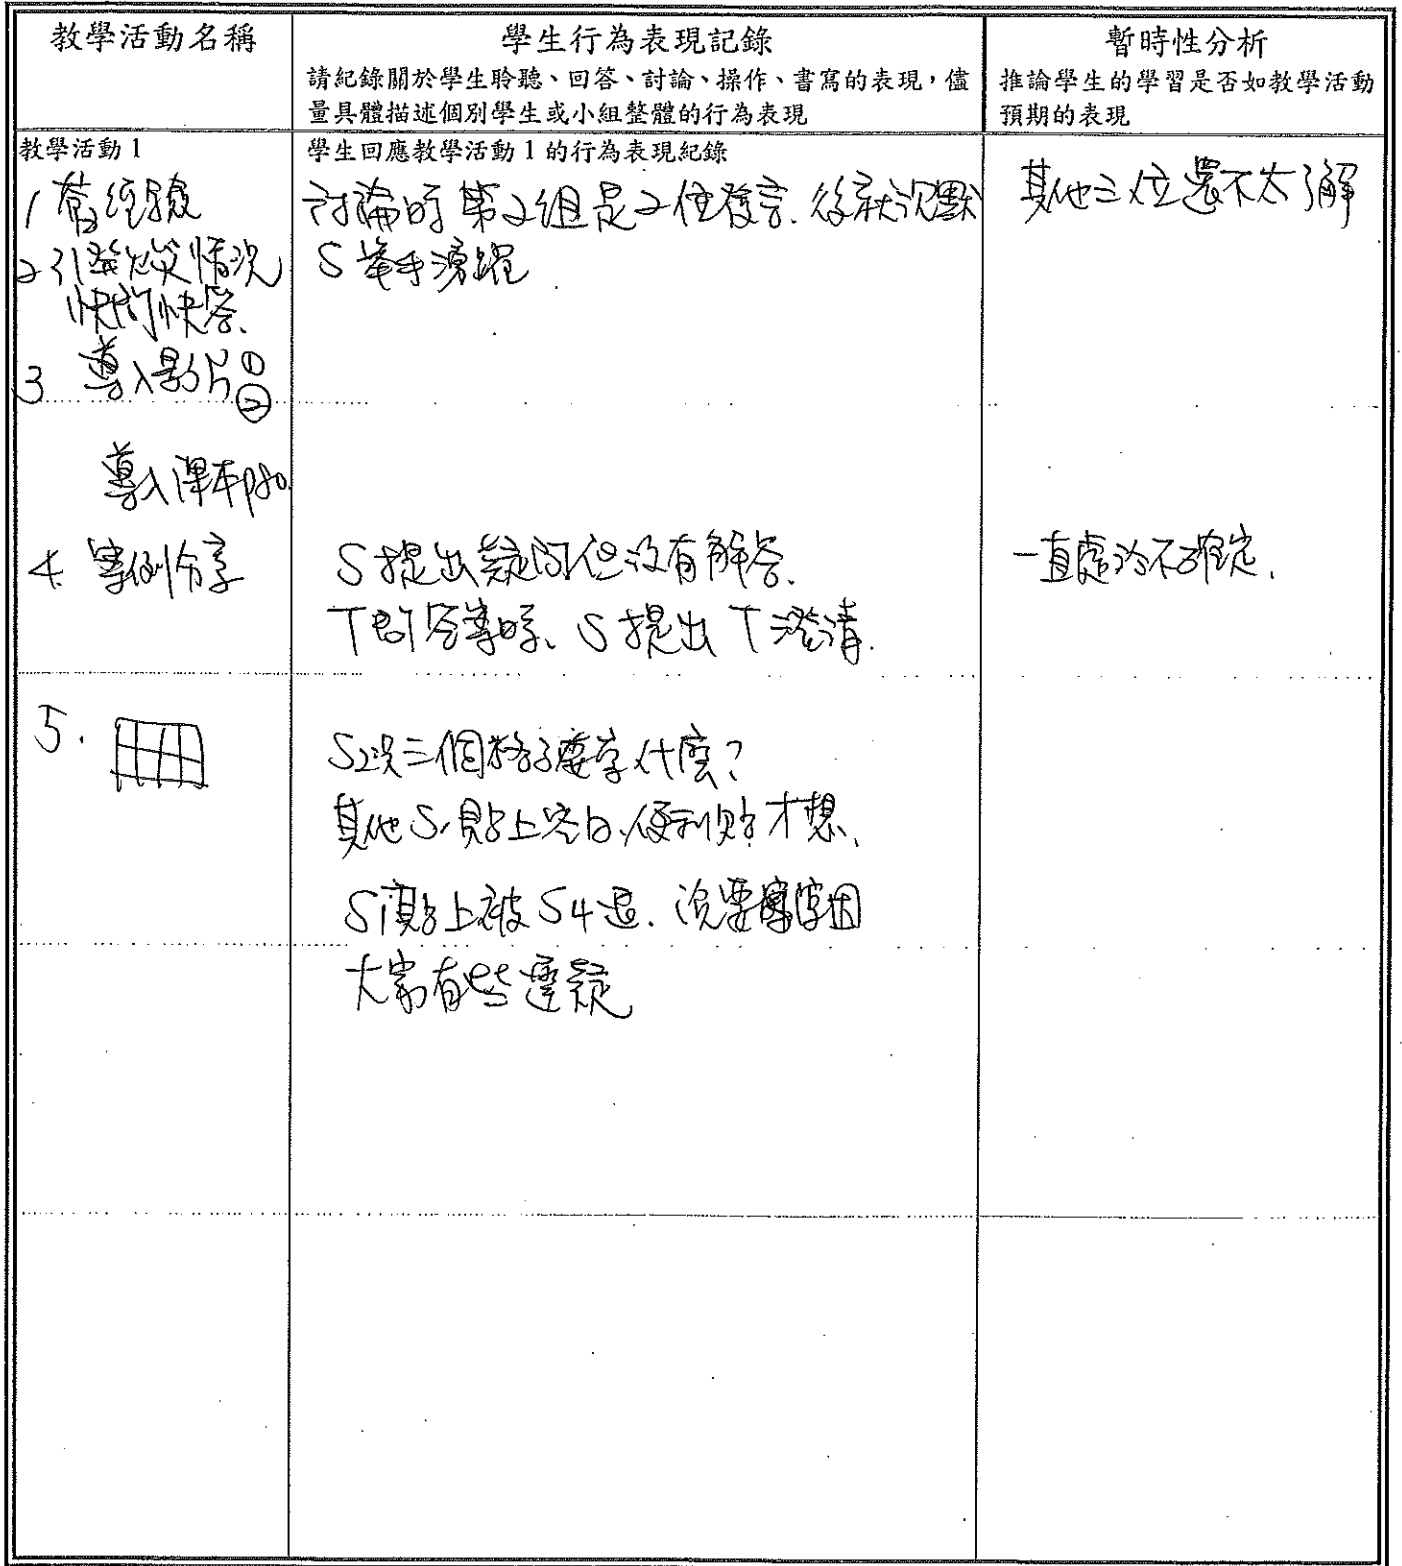 教學活動名稱
學生行為表現記錄
請紀錄關於學生聆聽、回答、討論、操作、書寫的表現，儘
量具體描述個別學生或小組整體的行為表現
暫時性分析
推論學生的學習是否如教學活動
預期的表現
教學活動1
1 舊經驗
2 引發火災情況
快問快答、
3 導入影片①
②
學生回應教學活動1的行為表現紀錄
討論時第2組是2位發言、後就沉默
S舉手湧躍
其他三位還不太了解
導入課本p80
4. 案例分享
S提出疑問但沒有解答、
T 答案時、S提出T澄清.
一直處於不確定、
5.
S2說三個格子要寫什麼？
其他S貼上空白便利貼才想、
S1貼上被S4退、說要寫原因
大家有些遲疑